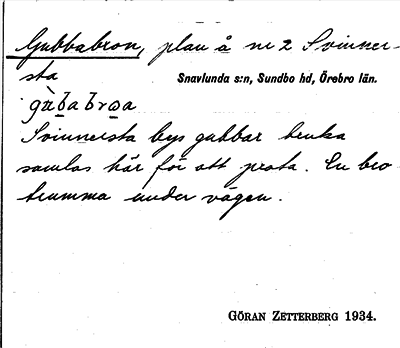 Gubbabron, plan å nr 2 Svinner-
sta
Snavlunda s:n, Sundbo hd, Örebro län.
Svinnersta bys gubbar bruka
samlas här för att prata. En bro-
trumma under vägen.
GÖRAN ZETTERBERG 1934.